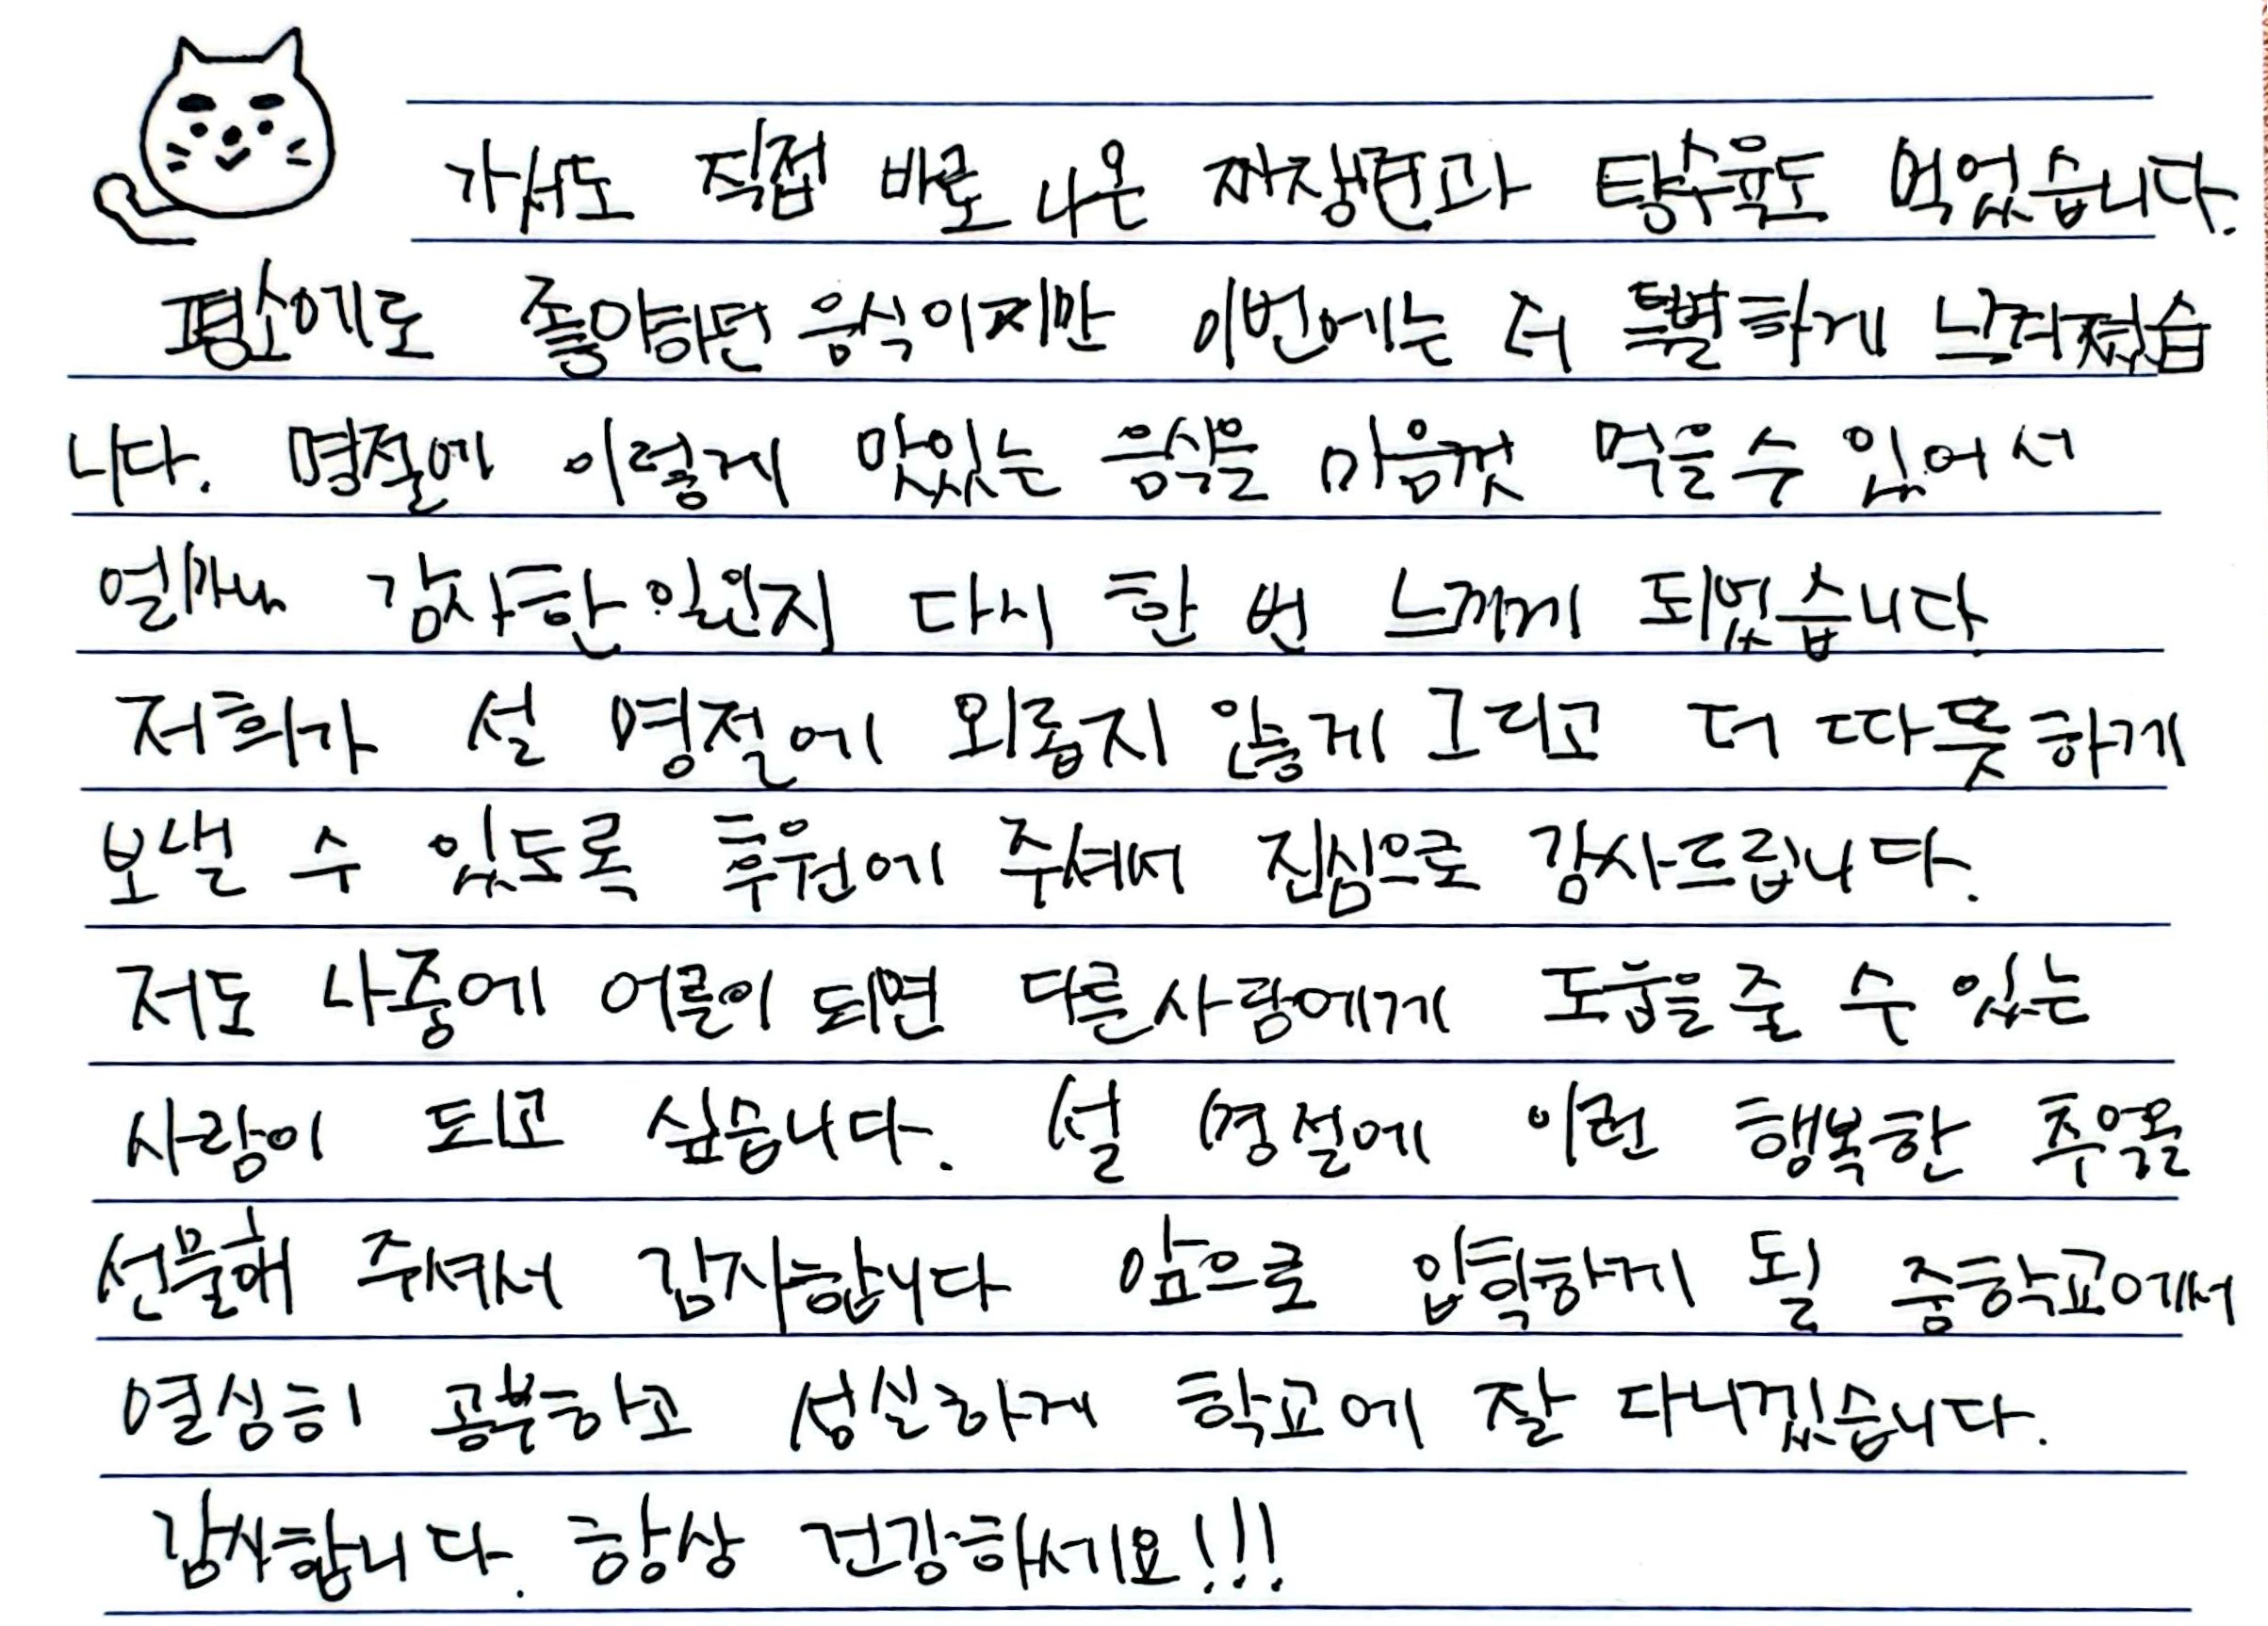 가서도 직접 바로 나온 짜장면과 탕수육도 먹었습니다.
평소에도 좋아하던 음식이지만 이번에는 더 특별하게 느껴졌습
니다. 명절에 이렇게 맛있는 음식을 마음껏 먹을 수 있어서
얼마나 감사한 일인지 다시 한 번 느끼게 되었습니다.
저희가 설 명절에 외롭지 않게 그리고 더 따뜻하게
보낼 수 있도록 후원에 주셔서 진심으로 감사드립니다.
저도 나중에 어른이 되면 다른사람에게 도움을 줄 수 있는
사람이 되고 싶습니다. 설 명절에 이런 행복한 추억을
선물해 주셔서 감사합니다 앞으로 입학하게 될 중학교에서
열심히 공부하고 성실하게 학교에 잘 다니겠습니다.
감사합니다. 항상 건강하세요!!!